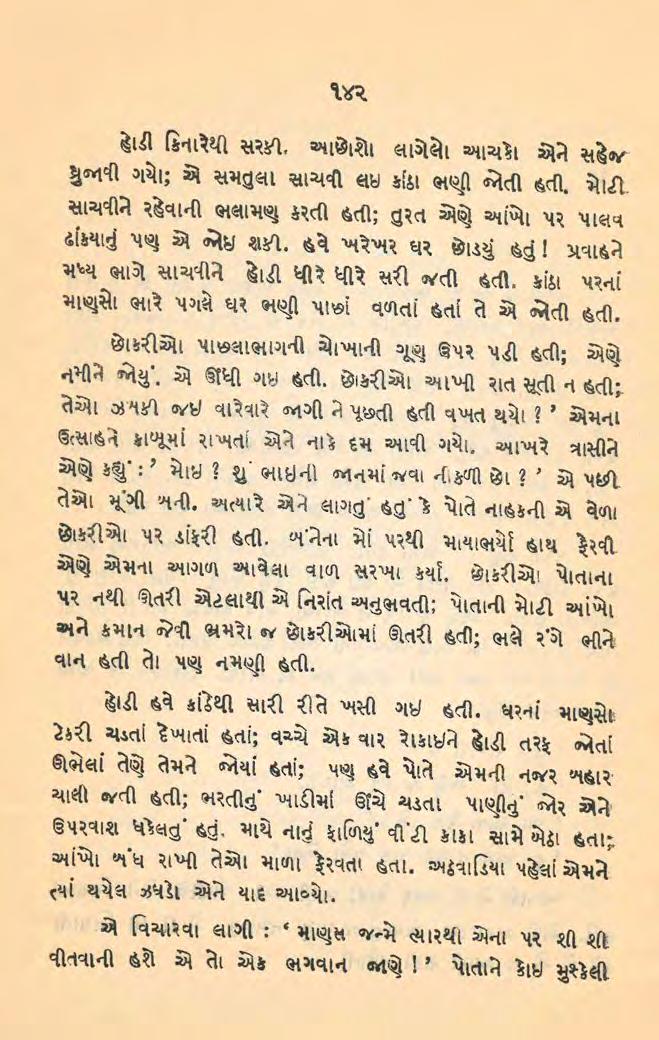 ૧૪૨
હોડી કિનારેથી સરકી. આછોશો લાગેલો આચકો એને સહેજ
ધ્રુજાવી ગયો; એ સમતુલા સાચવી લઇ કાંઠા ભણી જોતી હતી. મોટી
સાચવીને રહેવાની ભલામણ કરતી હતી; તુરત એણે આંખો પર પાલવ
ઢાંકયાનું પણ એ જોઇ શકી. હવે ખરેખર ઘર છોડયું હતું! પ્રવાહને
મધ્ય ભાગે સાચવીને હોડી ધીરે ધીરે સરી જતી હતી. કાંઠા પરનાં
માણુસો ભારે પગલે ઘર ભણી પાછાં વળતાં હતાં તે એ જોતી હતી.
છોકરીઓ પાછલાભાગની ચોખાની ગૂણ ઉપર પડી હતી; એણે
નમીને જોયું. એ ઊંઘી ગઇ હતી. છોકરીઓ આખી રાત સૂતી ન હતી;
તેઓ ઝબકી જઇ વારેવારે જાગી ને પૂછતી હતી વખત થયો ? ’ એમના
ઉત્સાહને કાબૂમાં રાખતાં એને નાકે દમ આવી ગયો. આખરે ત્રાસીને
એણે કહ્યું : ’ મોઇ ? શું ભાઇની જાનમાં જવા નીકળી છો ? ’ એ પછી
તેઓ મૂંગી બની. અત્યારે એને લાગતું હતું કે પોતે નાહકની એ વેળા
છોકરીઓ પર ડાંફરી હતી. બંનેના મોં પરથી માયાભર્યો હાથ ફેરવી
એણે એમના આગળ આવેલા વાળ સરખા કર્યા. છોકરીઓ પોતાના
પર નથી ઊતરી એટલાથી એ નિરાંત અનુભવતી; પોતાની મોટી આંખો
અને કમાન જેવી ભ્રમરો જ છોકરીઓમાં ઊતરી હતી; ભલે રંગે ભીને
વાન હતી તો પણ નમણી હતી.
હોડી હવે કાંઠેથી સારી રીતે ખસી ગઇ હતી. ઘરનાં માણુસો
ટેકરી ચડતાં દેખાતાં હતાં; વચ્ચે એક વાર રોકાઇને હોડી તરફ જોતાં
ઊભેલાં તેણે તેમને જોયાં હતાં; પણ હવે પોતે એમની નજર બહાર
ચાલી જતી હતી; ભરતીનું ખાડીમાં ઊંચે ચડતા પાણીનું જોર એને
ઉપરવાશ ધકેલતું હતું. માથે નાનું ફાળિયું વીંટી કાકા સામે બેઠા હતા;
આંખો બંધ રાખી તેઓ માળા ફેરવતા હતા. અઠવાડિયા પહેલાં એમને
ત્યાં થયેલ ઝઘડો એને યાદ આવ્યો.
એ વિચારવા લાગી : ‘ માણુસ જન્મે ત્યારથી એના પર શી શી
વીતવાની હશે એ તો એક ભગવાન જાણે ! ’ પોતાને કોઇ મુશ્કેલી